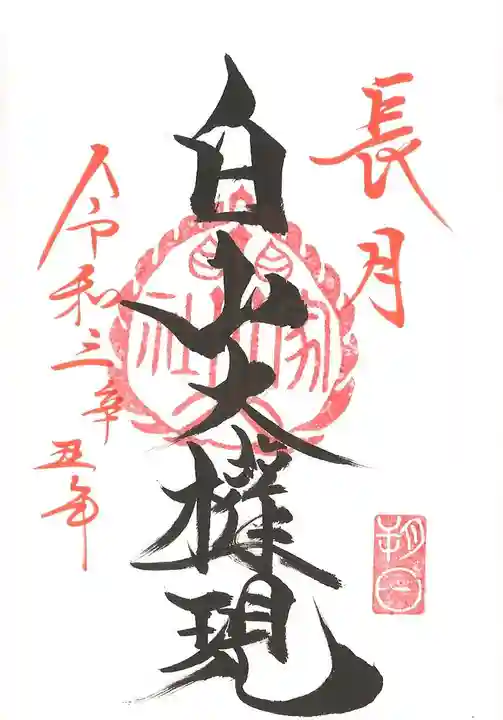 長月
白山大権現
令和三辛丑年